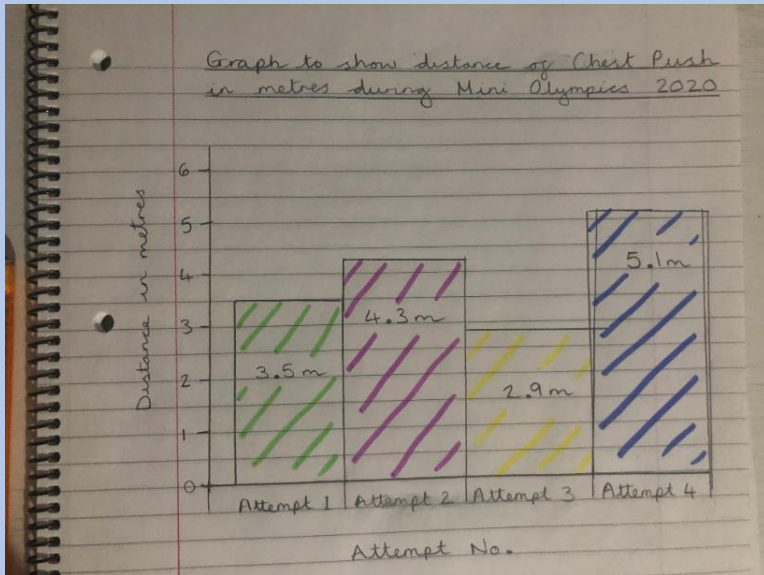 Graph to show distance of Chest Push
in metres during Mini Olympics 2020
Distance in metres
6
5
4
3
2
1
0
3.5m
4.3m
2.9m
5.1m
Attempt 1
Attempt 2
Attempt 3
Attempt 4
Attempt No.